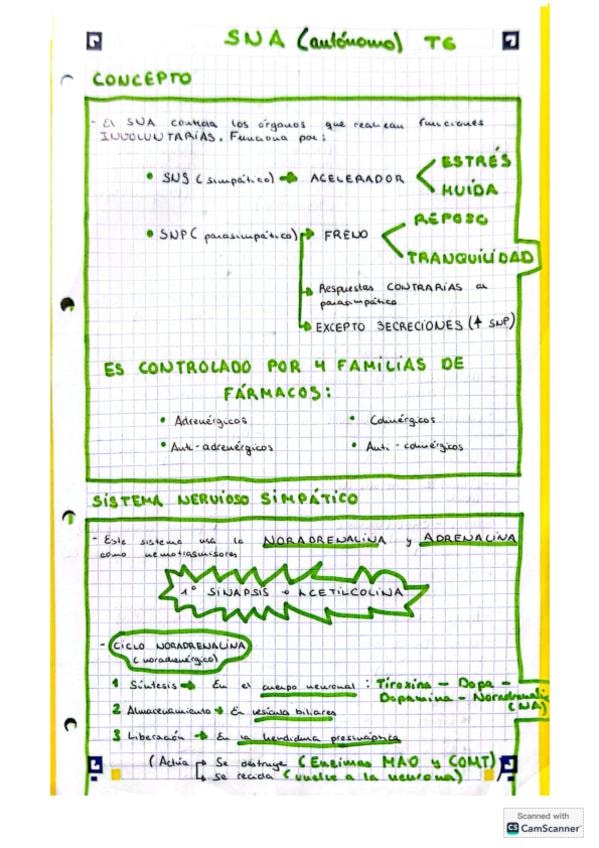 SNA (autónomo) T6
CONCEPTO
- El SNA controla los órganos que realizan funciones
INVOLUNTARIAS. Funciona por:
• SNS (simpático) → ACELERADOR
ESTRÉS
HUÍDA
• SNP (parasimpático) → FRENO
REPOSO
TRANQUILIDAD
Respuestas CONTRARIAS al
parasimpático
EXCEPTO SECRECIONES (↑ SNP)
ES CONTROLADO POR 4 FAMILIAS DE
FÁRMACOS:
• Adrenérgicos • Colinérgicos
• Anti-adrenérgicos • Anti-colinérgicos
SISTEMA NERVIOSO SIMPÁTICO
- Este sistema usa la NORADRENALINA y ADRENALINA
como
1º SINAPSIS → ACETILCOLINA
- CICLO NORADRENALINA
(noradrenérgico)
1 Síntesis → En el cuerpo neuronal: Tiroxina - Dopa -
Dopamina - Noradrenalina
(NA)
2 Almacenamiento → En vesícula biliares
3 Liberación → En la hendidura presináptica
(Actúa → Se destruye (Enzimas MAO y COMT)
→ se recicla (vuelve a la neurona)
Scanned with
CS CamScanner